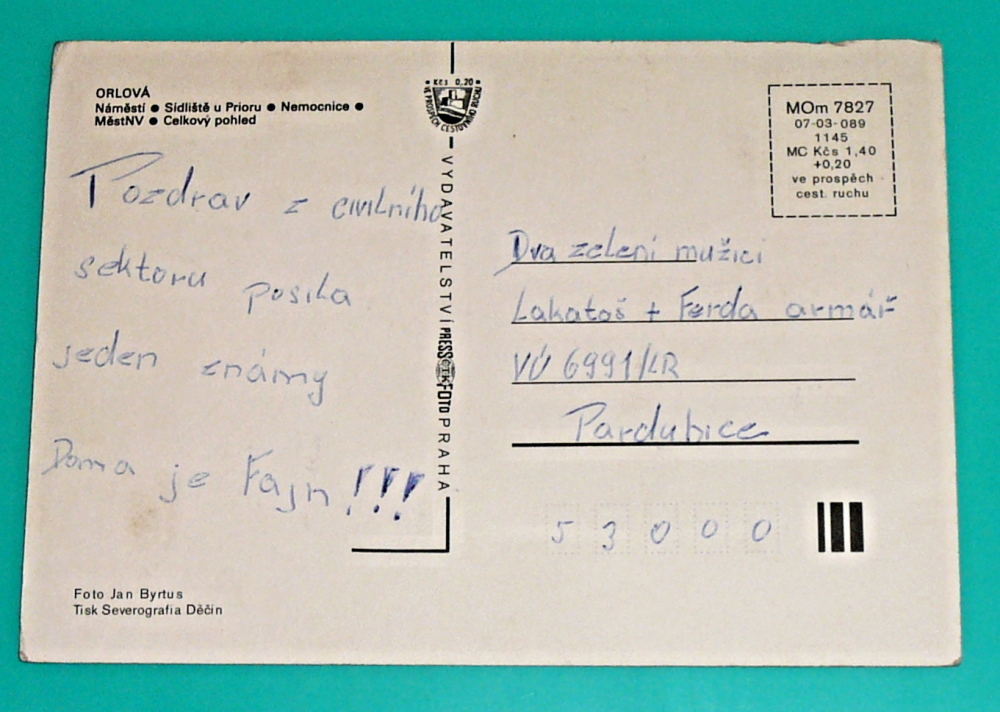 ORLOVÁ
Náměstí ● Sídliště u Prioru ● Nemocnice ●
MěstNV ● Celkový pohled
Pozdrav z civilního
sektoru posila
jeden známy
Doma je Fajn !!!
Foto Jan Byrtus
Tisk Severografia Děčín
Kčs 0,20
VE PROSPĚCH CESTOVNÍHO RUCHU
VYDAVATELSTVÍ PRESSFOTO PRAHA
MOm 7827
07-03-089
1145
MC Kčs 1,40
+0,20
ve prospěch
cest. ruchu
Dva zelení mužici
Lakatoš + Ferda armář
VÚ 6991/KR
Pardubice
53000